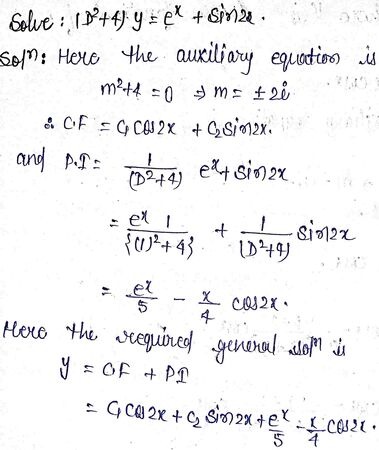 Solve : (D²+4) y = eˣ + Sin2x .
Solⁿ: Here the auxiliary equation is
m²+4 = 0 ⇒ m = ± 2i
∴ CF = C₁ Cos2x + C₂ Sin2x.
and P.I = 1/(D²+4) eˣ + Sin2x
= eˣ 1/{(1)²+4} + 1/(D²+4) Sin2x
= eˣ/5 − x/4 cos2x .
Here the required general solⁿ is
y = CF + PI
= C₁ Cos2x + C₂ Sin2x + eˣ/5 − x/4 Cos2x .